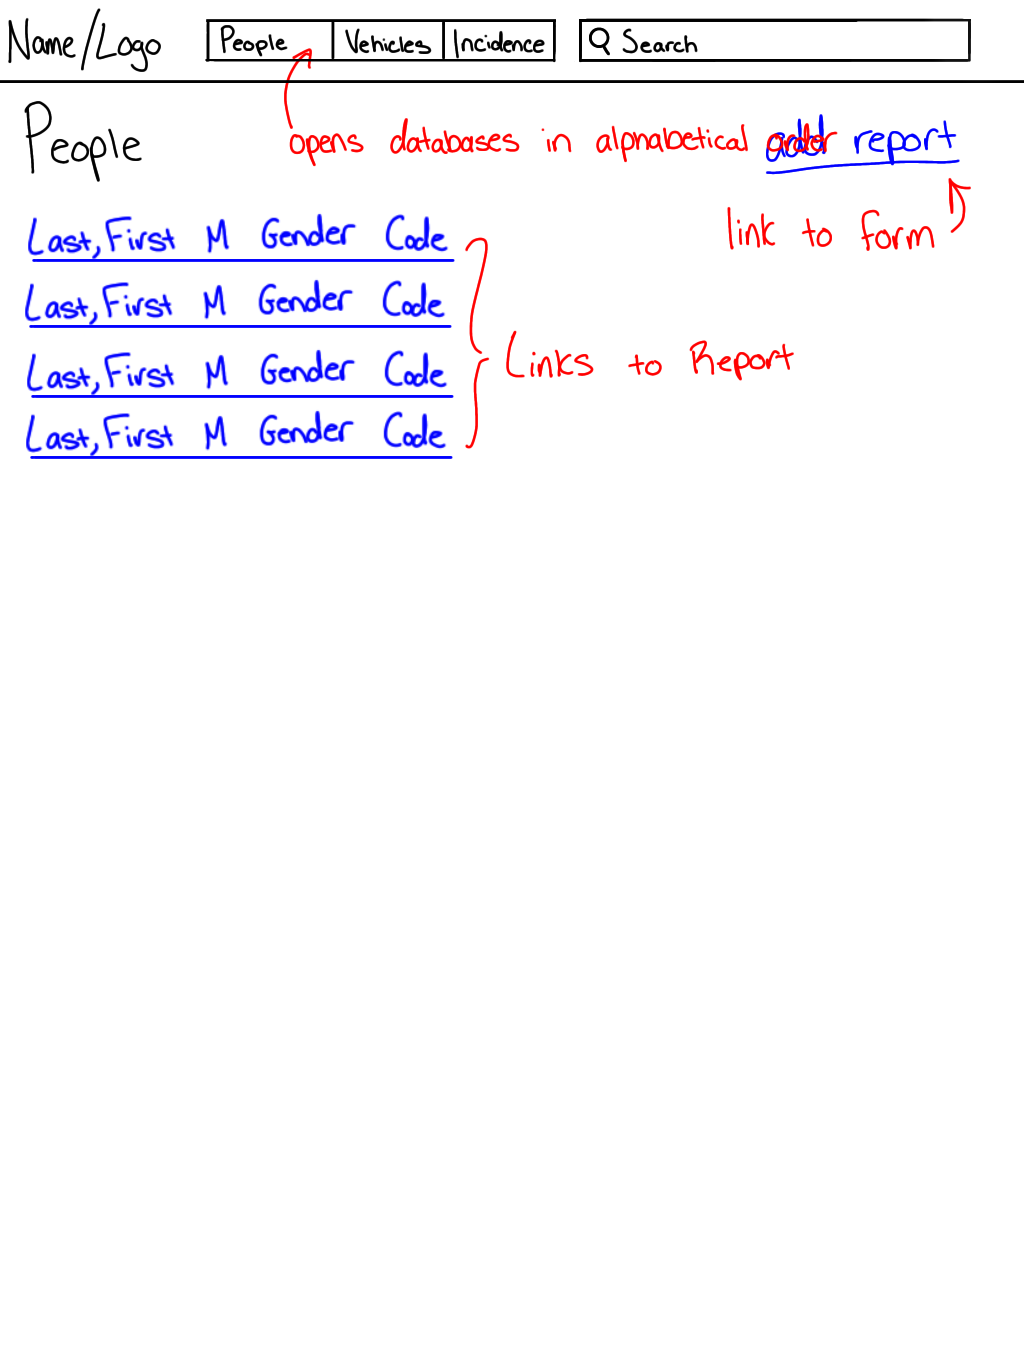 Name/Logo People Vehicles Incidence Search
People
opens databases in alphabetical order add report
link to form
Last, First M Gender Code
Last, First M Gender Code
Links to Report
Last, First M Gender Code
Last, First M Gender Code